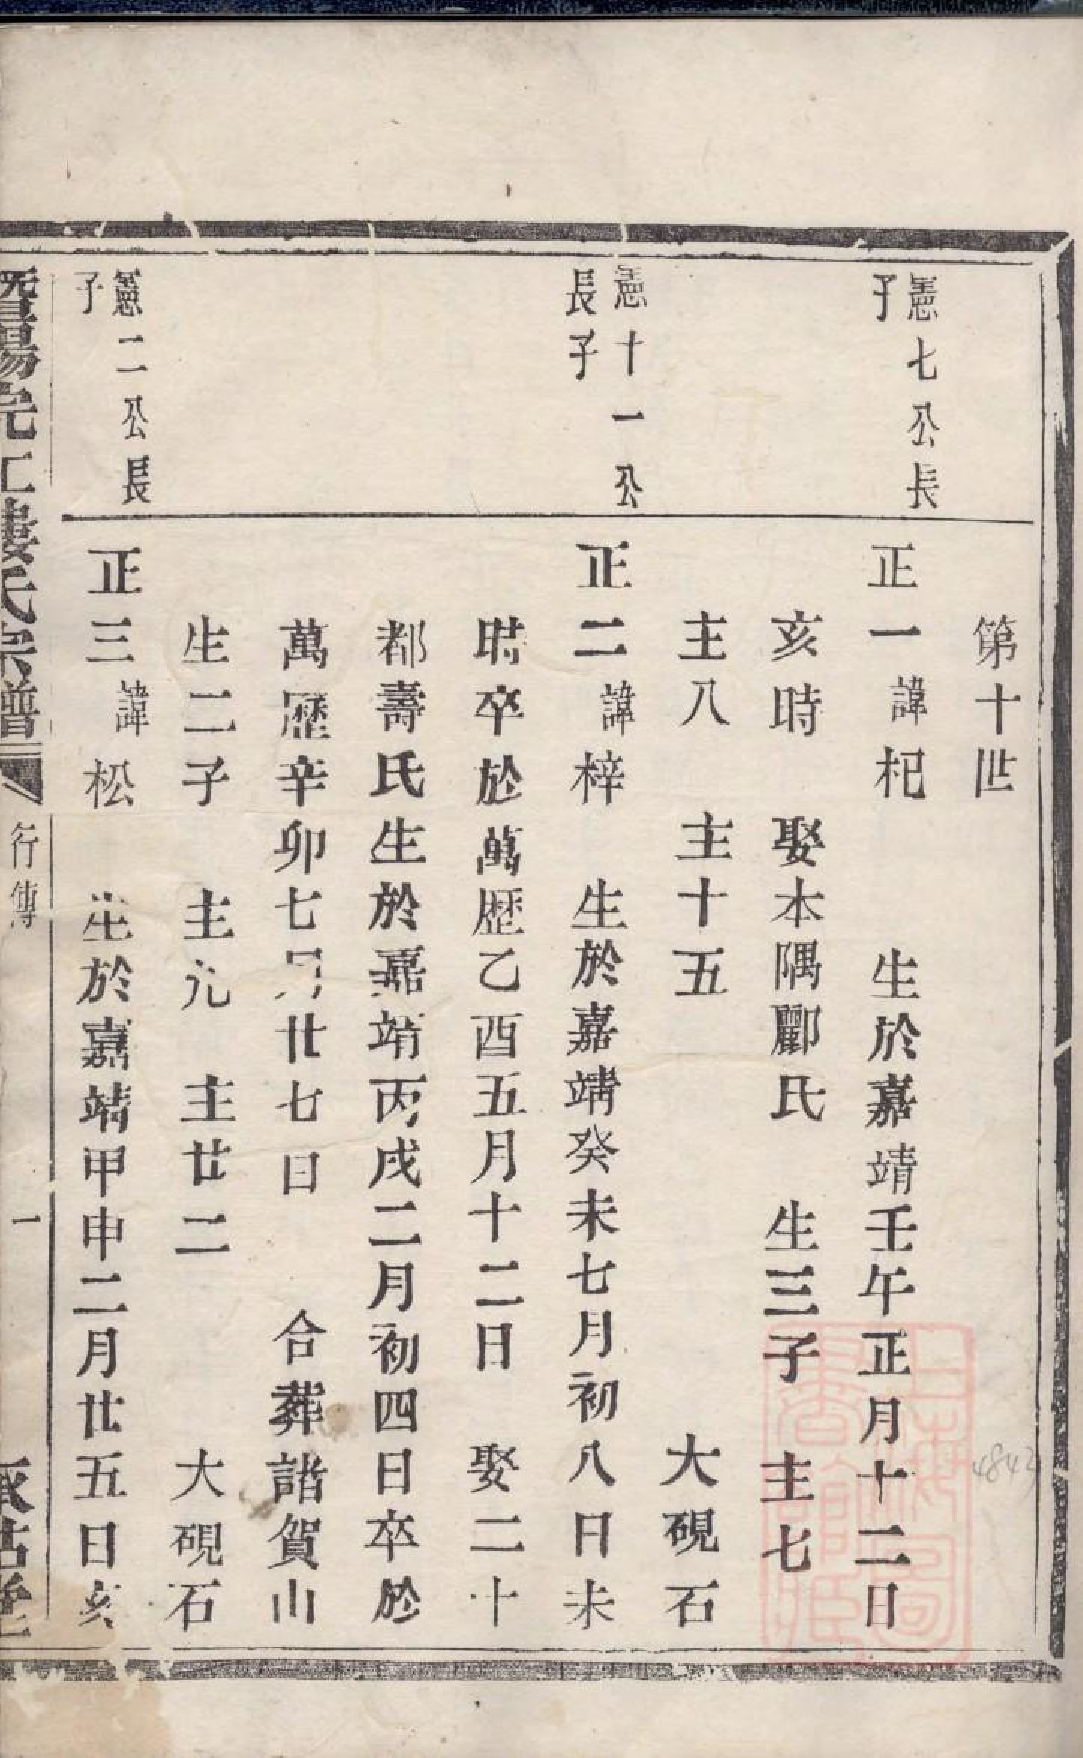 第十世
憲七公長
子
正一諱杞 生於嘉靖壬午正月十二日
亥時 娶本隅酈氏 生三子 主七
主八 主十五 大硯石
憲十一公
長子
正二諱梓 生於嘉靖癸未七月初八日未
時卒於萬歷乙酉五月十二日 娶二十
都壽氏生於嘉靖丙戌二月初四日卒於
萬歷辛卯七月廿七日 合葬諧賀山
生二子 主九 主廿二 大硯石
憲二公長
子
正三諱松 生於嘉靖甲申二月廿五日亥
暨陽 江婁氏宗譜
行傳
一
上海圖書館藏
4843